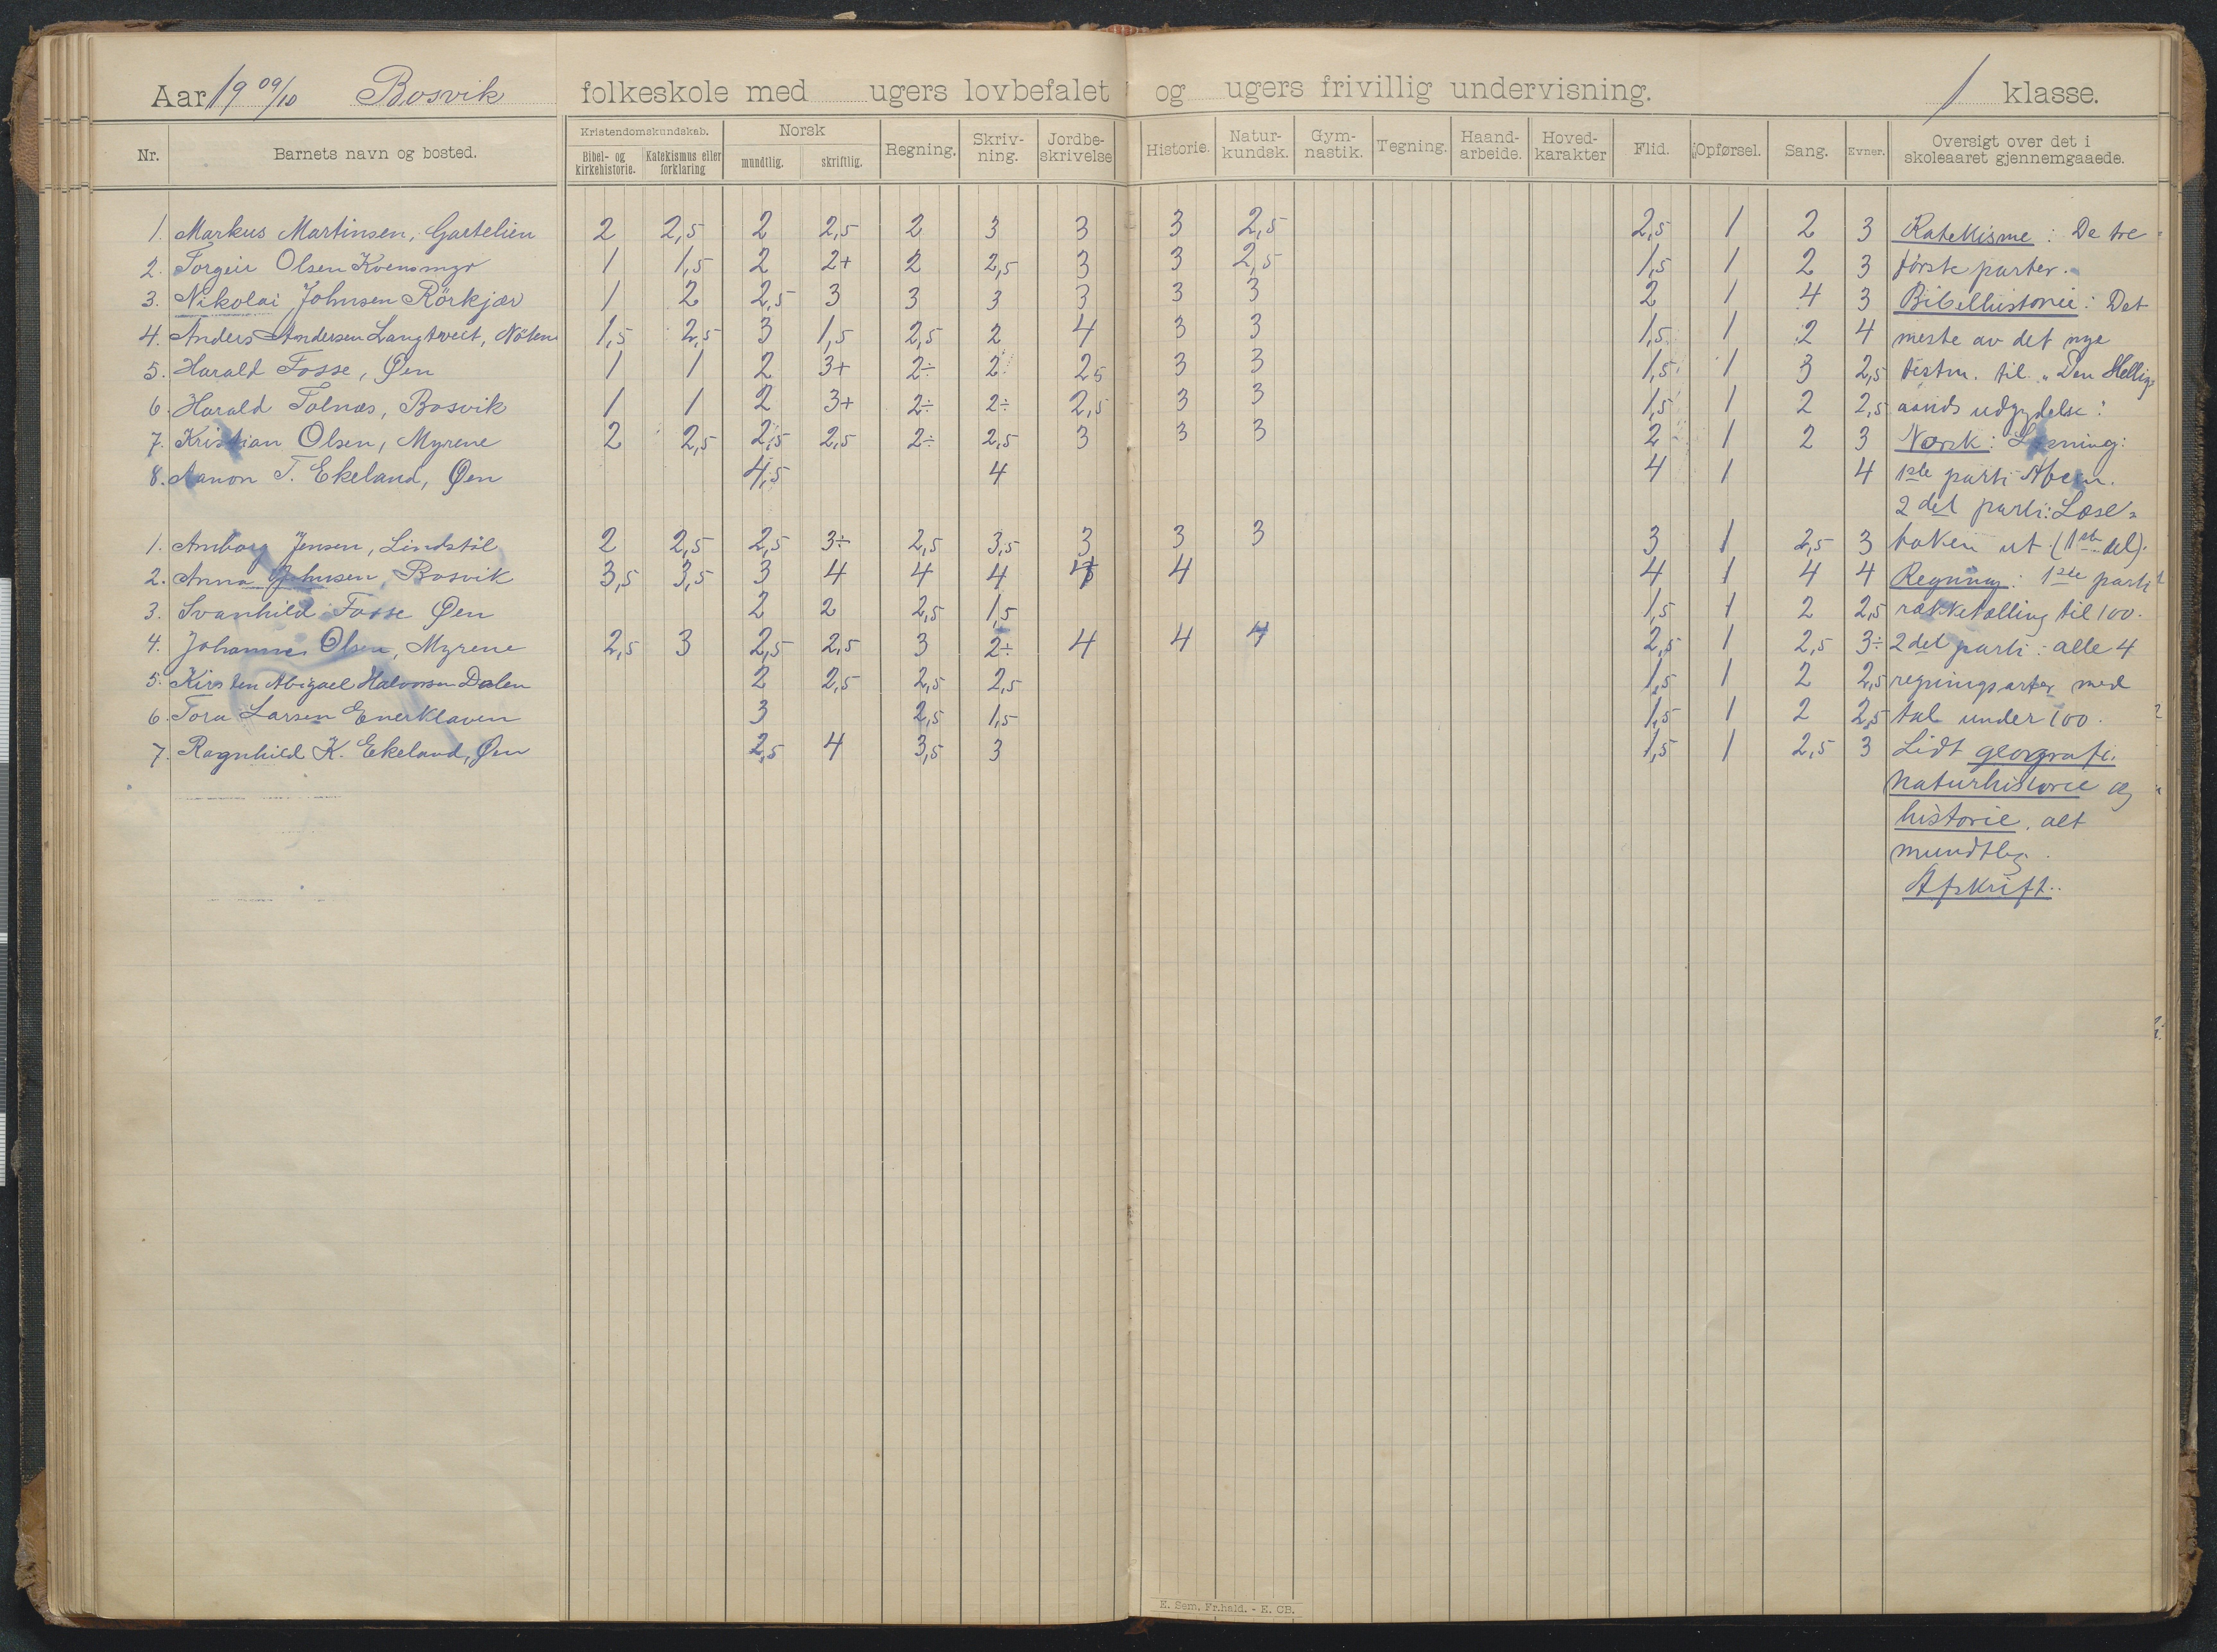 Aar 1909/10 Bosvik folkeskole med ugers lovbefalet og ugers frivillig undervisning. 1 klasse.
Nr. Barnets navn og bosted. Kristendomskundskab. Bibel- og kirkehistorie. Katekismus eller forklaring Norsk mundtlig. skriftlig. Regning. Skriv-ning. Jordbe-skrivelse Historie. Natur-kundsk. Gym-nastik. Tegning. Haand-arbeide. Hoved-karakter Flid. Opførsel. Sang. Evner. Oversigt over det i skoleaaret gjennemgaaede.
1. Markus Martinsen, 2 2,5 2 2,5 2 3 3 3 2,5 2,5 1 2 3 Katekisme: De tre
2. Torgeir Olsen Kvensmyr 1 1,5 2 2+ 2 2,5 3 3 2,5 1,5 1 2 3 første parter.
3. Nikolai Johnsen Rörkjær 1 2 2,5 3 3 3 3 3 3 2 1 4 3 Bibelhistorie: Det
4. Anders Andersen Langtveit, 1,5 2,5 3 1,5 2,5 2 4 3 3 1,5 1 2 4 meste av det nye
5. Harald Fosse, Øen 1 1 2 3+ 2÷ 2 2,5 3 3 1,5 1 3 2,5 testm. til "Den Hellig
6. Harald Tolnæs, Bosvik 1 1 2 3+ 2÷ 2÷ 2,5 3 3 1,5 1 2 2,5 aands udgydelse".
7. Kristian Olsen, Myrene 2 2,5 2,5 2,5 2÷ 2,5 3 3 3 2 1 2 3 Norsk: Læsning:
8. Aanon T. Ekeland, Øen 4,5 4 4 1 4 1ste parti Abcen.
2det parti: Læse=
1. Amborg Jensen, Lindstöl 2 2,5 2,5 3÷ 2,5 3,5 3 3 3 3 1 2,5 3 boken ut (1ste del).
2. Anna Johnsen, Bosvik 3,5 3,5 3 4 4 4 4 4 1 4 4 Regning: 1ste parti
3. Svanhild Fosse Øen 2 2 2,5 1,5 1,5 1 2 2,5 rækketælling til 100.
4. Johanne Olsen, Myrene 2,5 3 2,5 2,5 3 2÷ 4 4 4 2,5 1 2,5 3÷ 2det parti: alle 4
5. Kirsten Abigael Halvorsen Dalen 2 2,5 2,5 2,5 1,5 1 2 2,5 regningsarter med
6. Tora Larsen Enerklaven 3 2,5 1,5 1,5 1 2 2,5 tal under 100.
7. Ragnhild K. Ekeland, Øen 2,5 4 3,5 3 1,5 1 2,5 3 Lidt geografi,
naturhistorie og
historie, alt
mundtlig.
Afskrift.
E. Sem. Fr.hald. - E. CB.